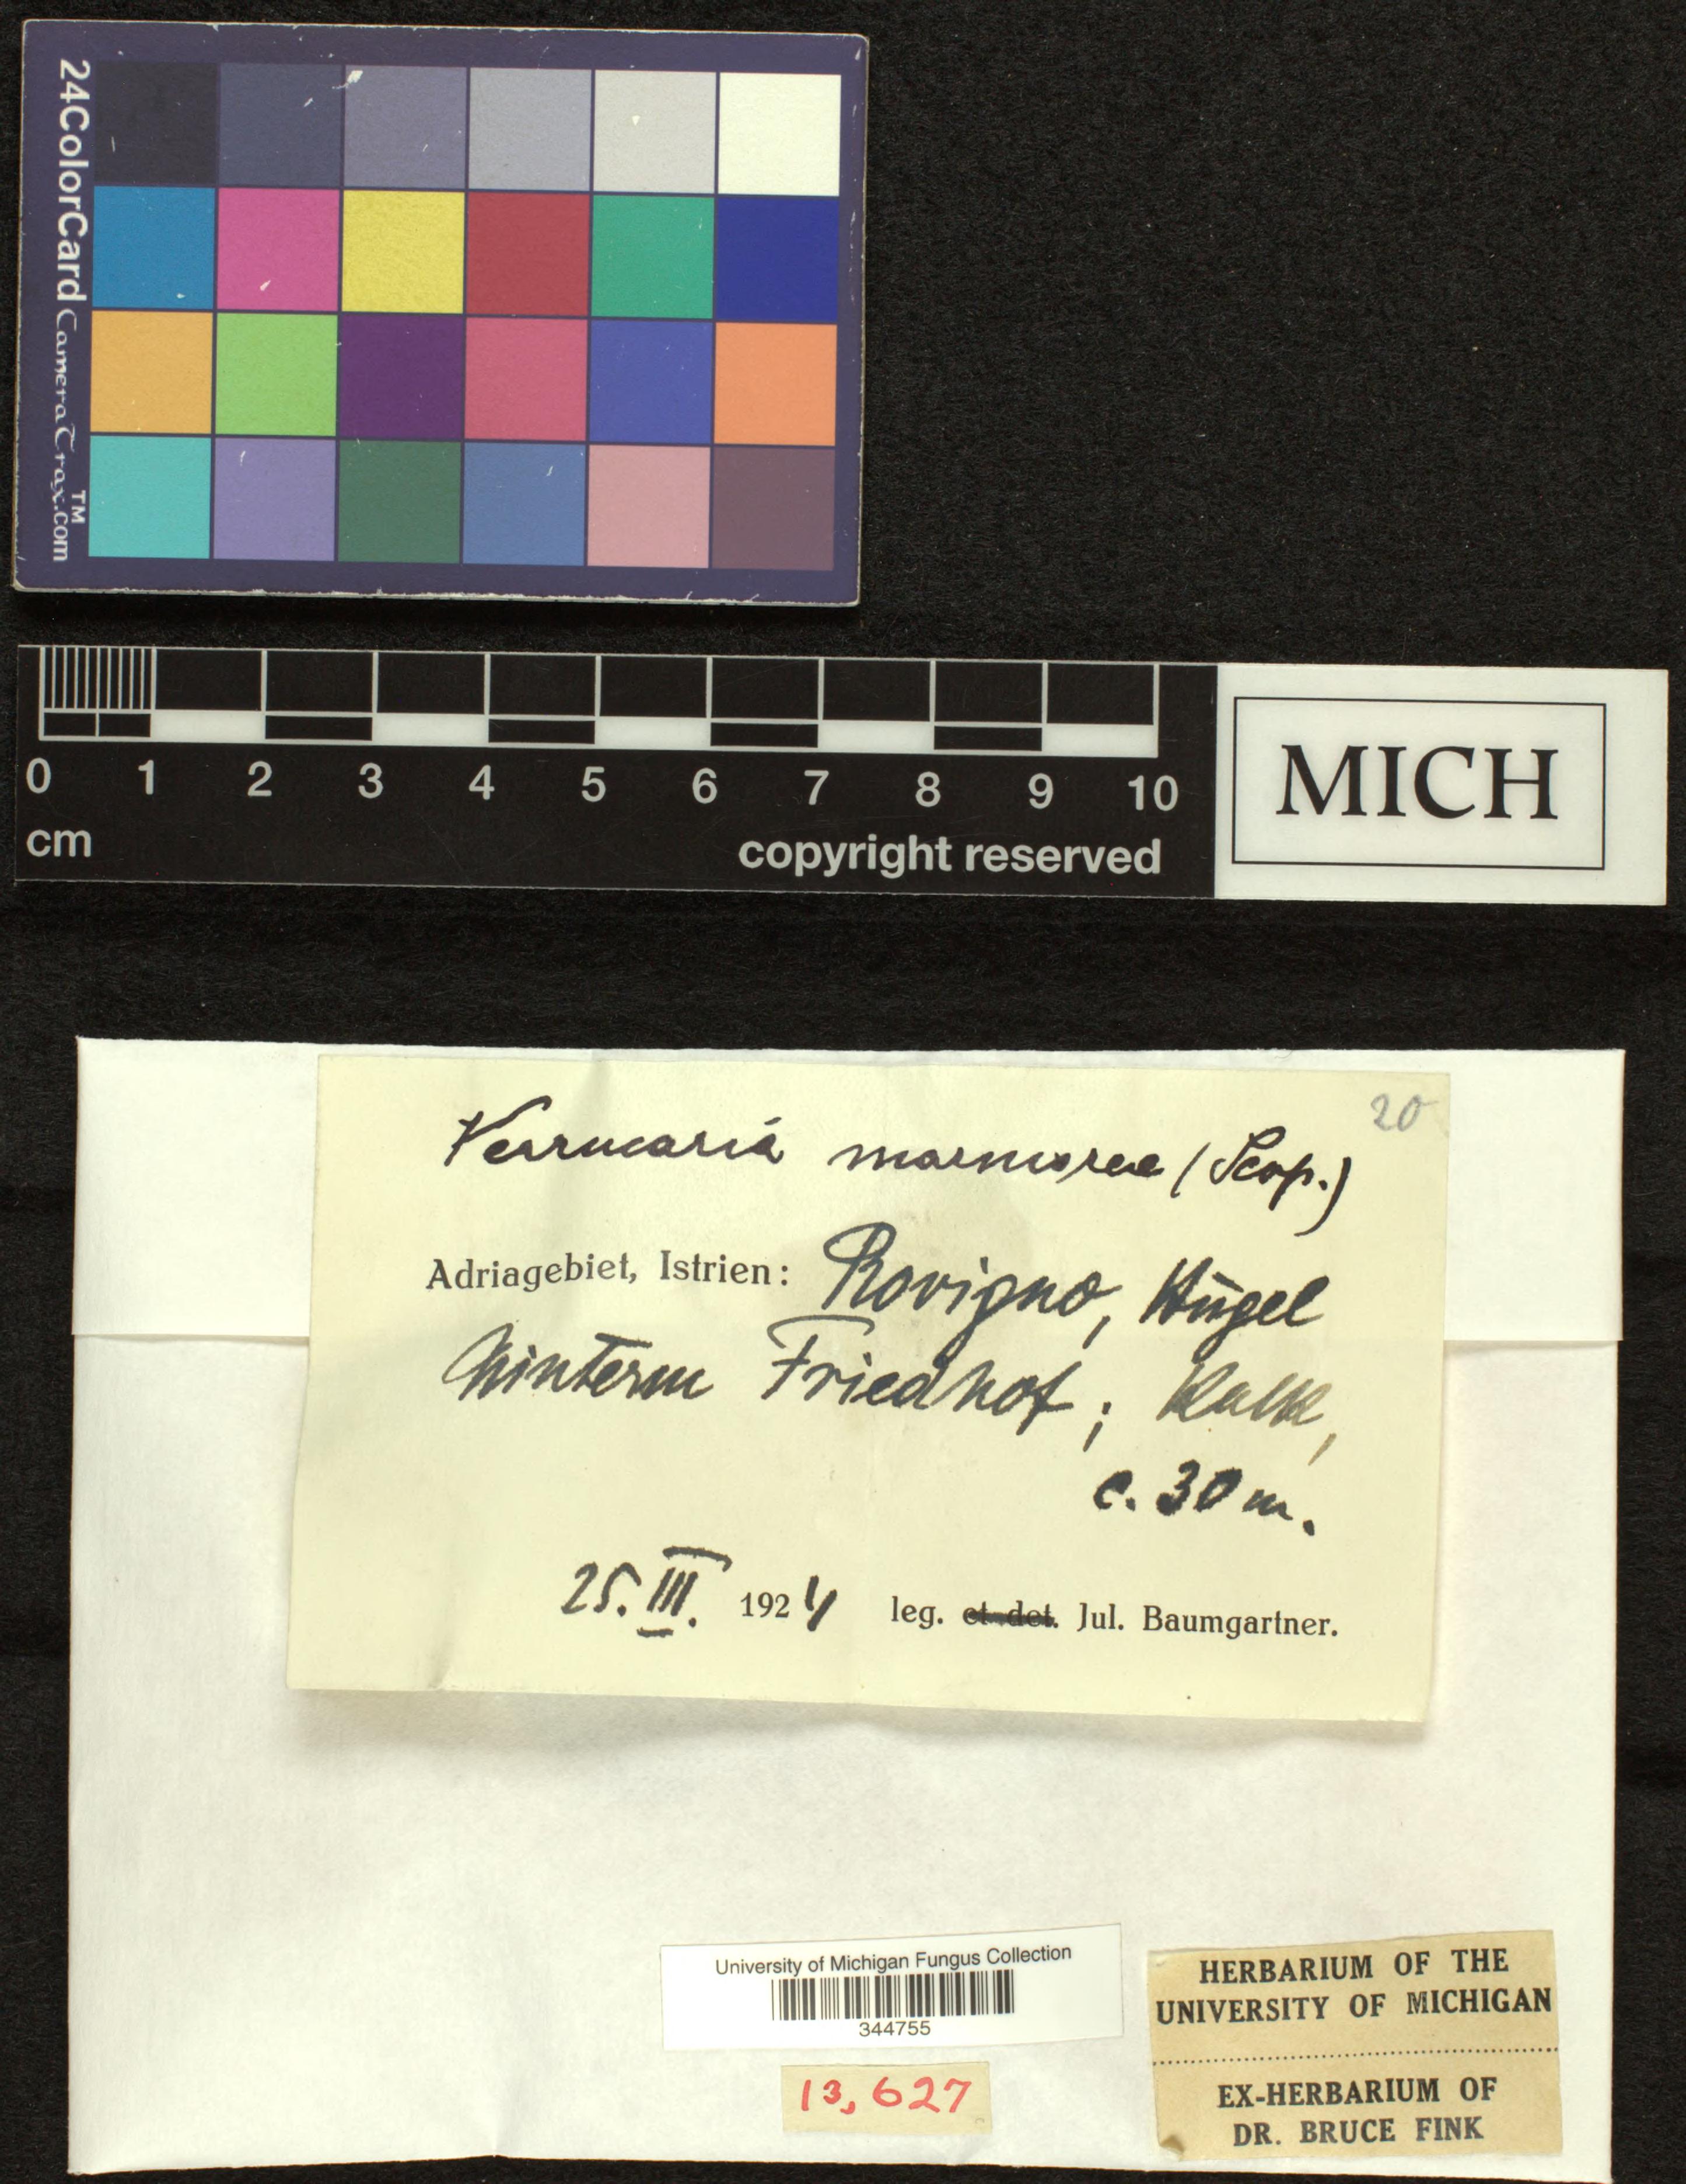 24ColorCard CameraTrax.com™
0 1 2 3 4 5 6 7 8 9 10
cm
copyright reserved
MICH
20
Verrucaria marmorea (Scop.)
Adriagebiet, Istrien: Rovigno, Hügel
hinterm Friedhof; Kalk,
c. 30 m.
25. III. 1924 leg. et det. Jul. Baumgartner.
University of Michigan Fungus Collection
344755
13,627
HERBARIUM OF THE
UNIVERSITY OF MICHIGAN
EX-HERBARIUM OF
DR. BRUCE FINK